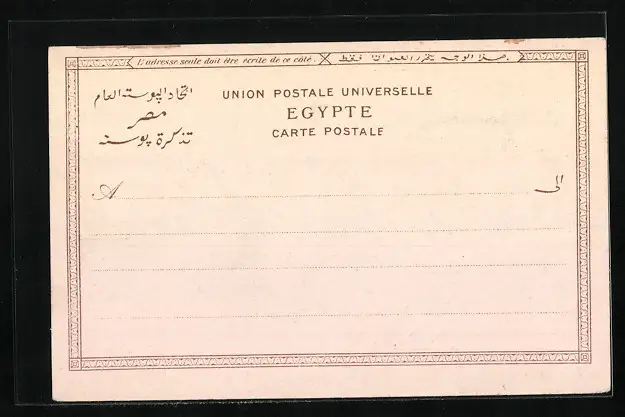 L'adresse seule doit être écrite de ce côté. هذا الوجه يحرر العنوان فقط.
اتحاد البوسته العام
مصر
تذكرة بوسته
UNION POSTALE UNIVERSELLE
EGYPTE
CARTE POSTALE
A
الى